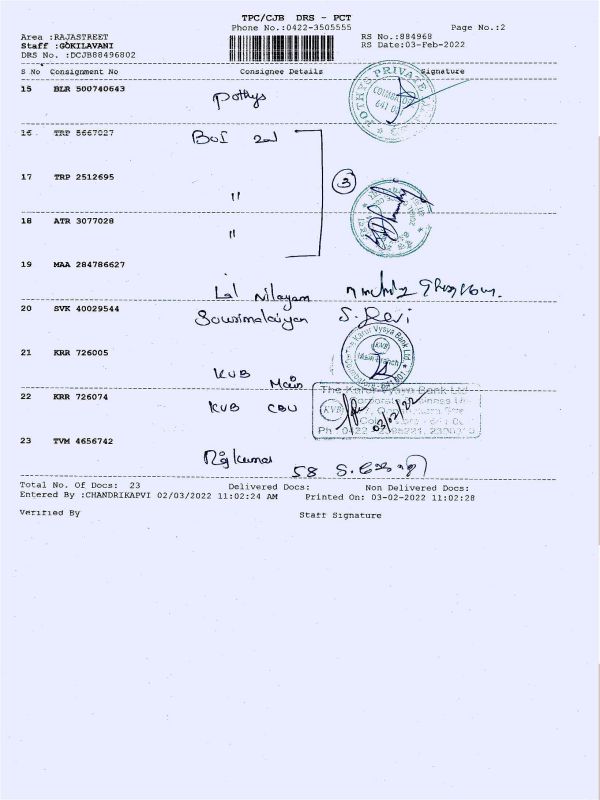 TPC/CJB DRS - PCT
Phone No.:0422-3505555
Page No.:2
Area :RAJASTREET
RS No.:884968
Staff :GOKILAVANI
RS Date:03-Feb-2022
DRS No. :DCJB88496802
S No Consignment No Consignee Details Signature
15 BLR 500740643
Pothys
POTHYS PRIVATE
COIMBATORE
641 00
16 TRP 5667027
BOI
17 TRP 2512695
"
3
18 ATR 3077028
"
19 MAA 284786627
Lal Nilayam
20 SVK 40029544
Sowrimalaiyan S. Devi
21 KRR 726005
KVB Main
The Karur Vysya Bank Ltd
KVB
Main Branch
22 KRR 726074
KVB CBU
The Karur Vysya Bank Ltd
KVB
03/02/22
23 TVM 4656742
Rajkumar 58
Total No. Of Docs: 23 Delivered Docs: Non Delivered Docs:
Entered By :CHANDRIKAPVI 02/03/2022 11:02:24 AM Printed On: 03-02-2022 11:02:28
Verified By Staff Signature